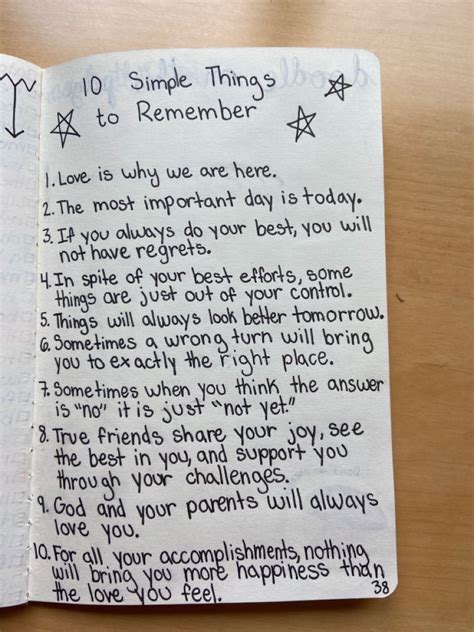 10 Simple Things
to Remember
1. Love is why we are here.
2. The most important day is today.
3. If you always do your best, you will
not have regrets.
4. In spite of your best efforts, some
things are just out of your control.
5. Things will always look better tomorrow.
6. Sometimes a wrong turn will bring
you to exactly the right place.
7. Sometimes when you think the answer
is "no" it is just "not yet."
8. True friends share your joy, see
the best in you, and support you
through your challenges.
9. God and your parents will always
love you.
10. For all your accomplishments, nothing
will bring you more happiness than
the love you feel.
38